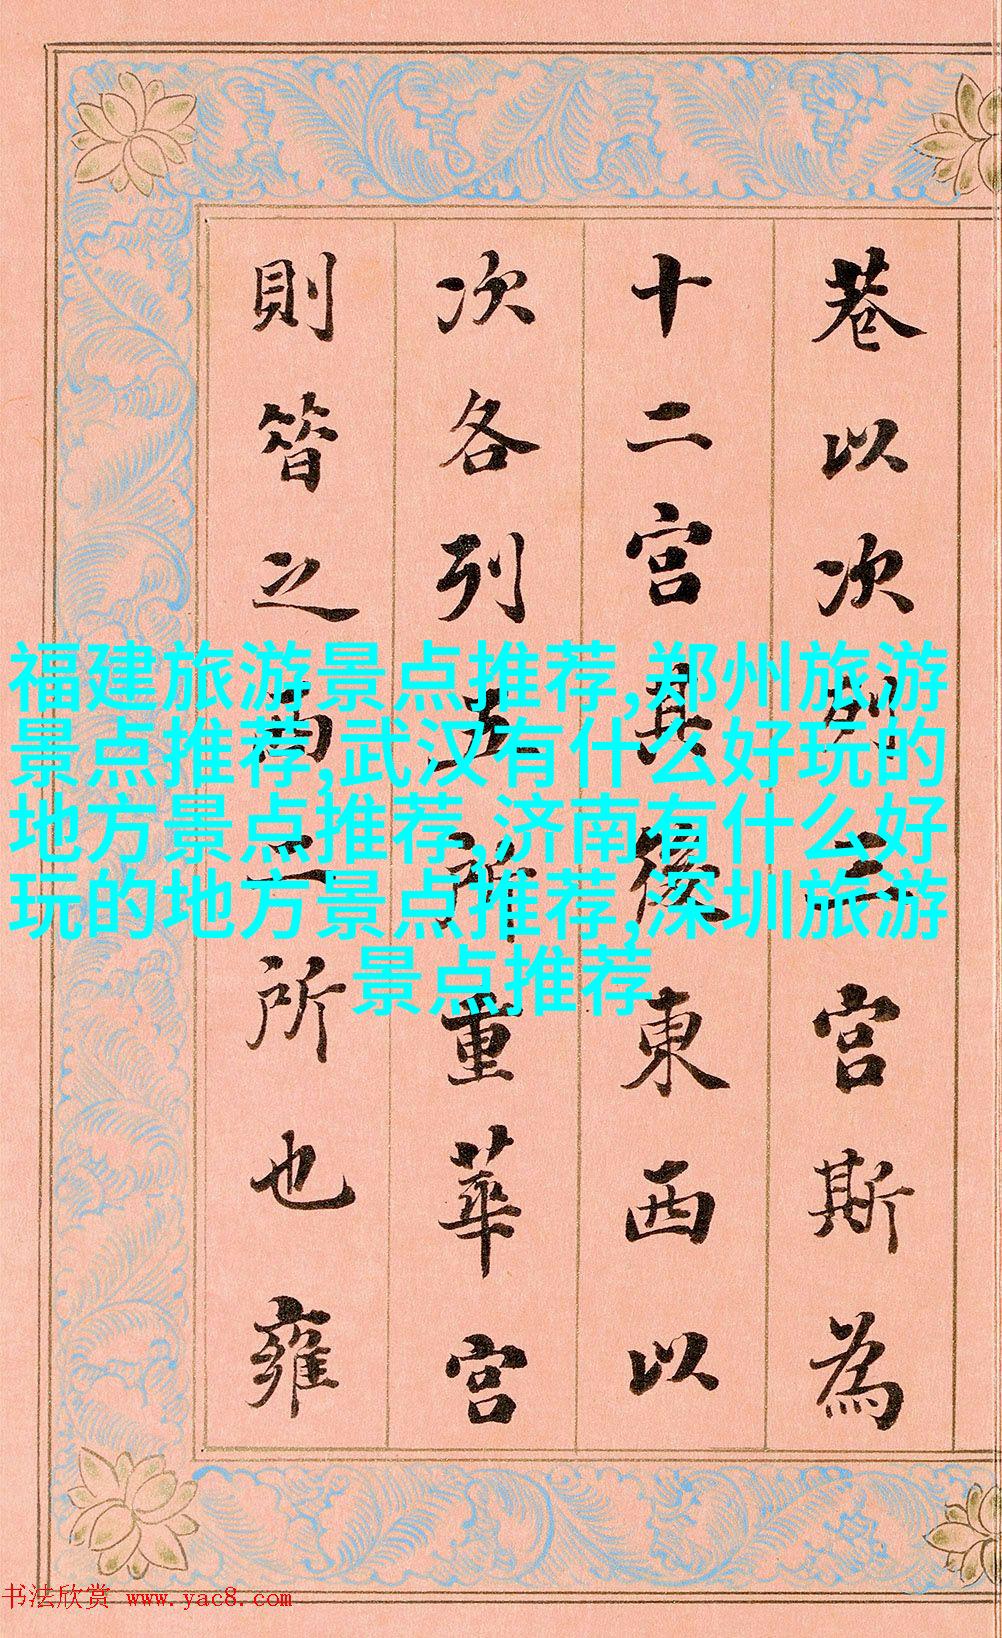 巷以次列三宫斯為
十二宫其後東西以
次各列五所重華宫
則之為所也雍
福建旅游景点推荐,郑州旅游
景点推荐,武汉有什么好玩的
地方景点推荐,济南有什么好
玩的地方景点推荐,深圳旅游
景点推荐
书法欣赏 www.yac8.com